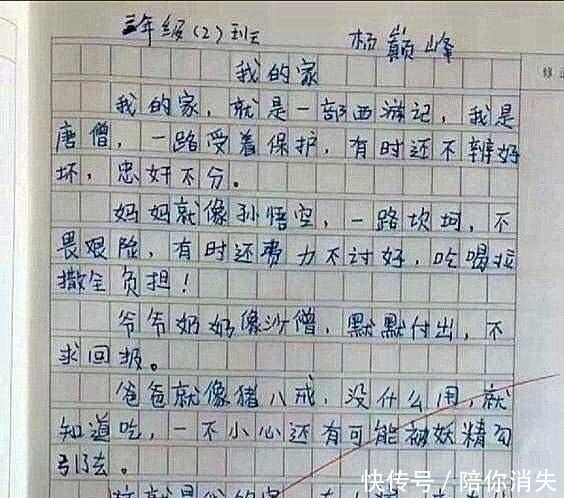 三年级(2)班 杨巅峰
我的家
修
我的家，就是一部西游记，我是
唐僧，一路受着保护，有时还不辨好
坏，忠奸不分。
妈妈就像孙悟空，一路坎坷，不
畏艰险，有时还费力不讨好，吃喝拉
撒全负担！
爷爷奶奶像沙僧，默默付出，不
求回报。
爸爸就像猪八戒，没什么用，就
知道吃，一不小心还有可能被妖精勾
引去。
这就是我的家
快传号/陪你消失